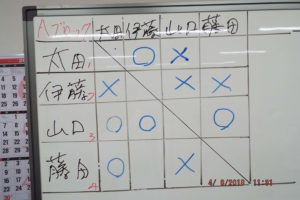 Aブロック 太田 伊藤 山口 藤田
太田 1 ○ ×
伊藤 2 × × ×
山口 3 ○ ○ ○
藤田 4 ○ × ○
4/ 8/2018 11:51